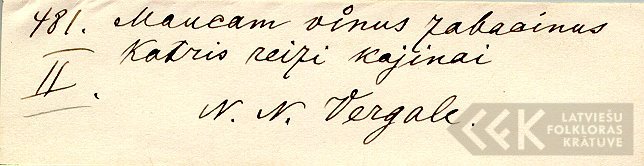 481. Maucam vînus zabacinus
Katris reizi kajinai
II.
N. N. Vergale.
LATVIEŠU
FOLKLORAS
KRĀTUVE